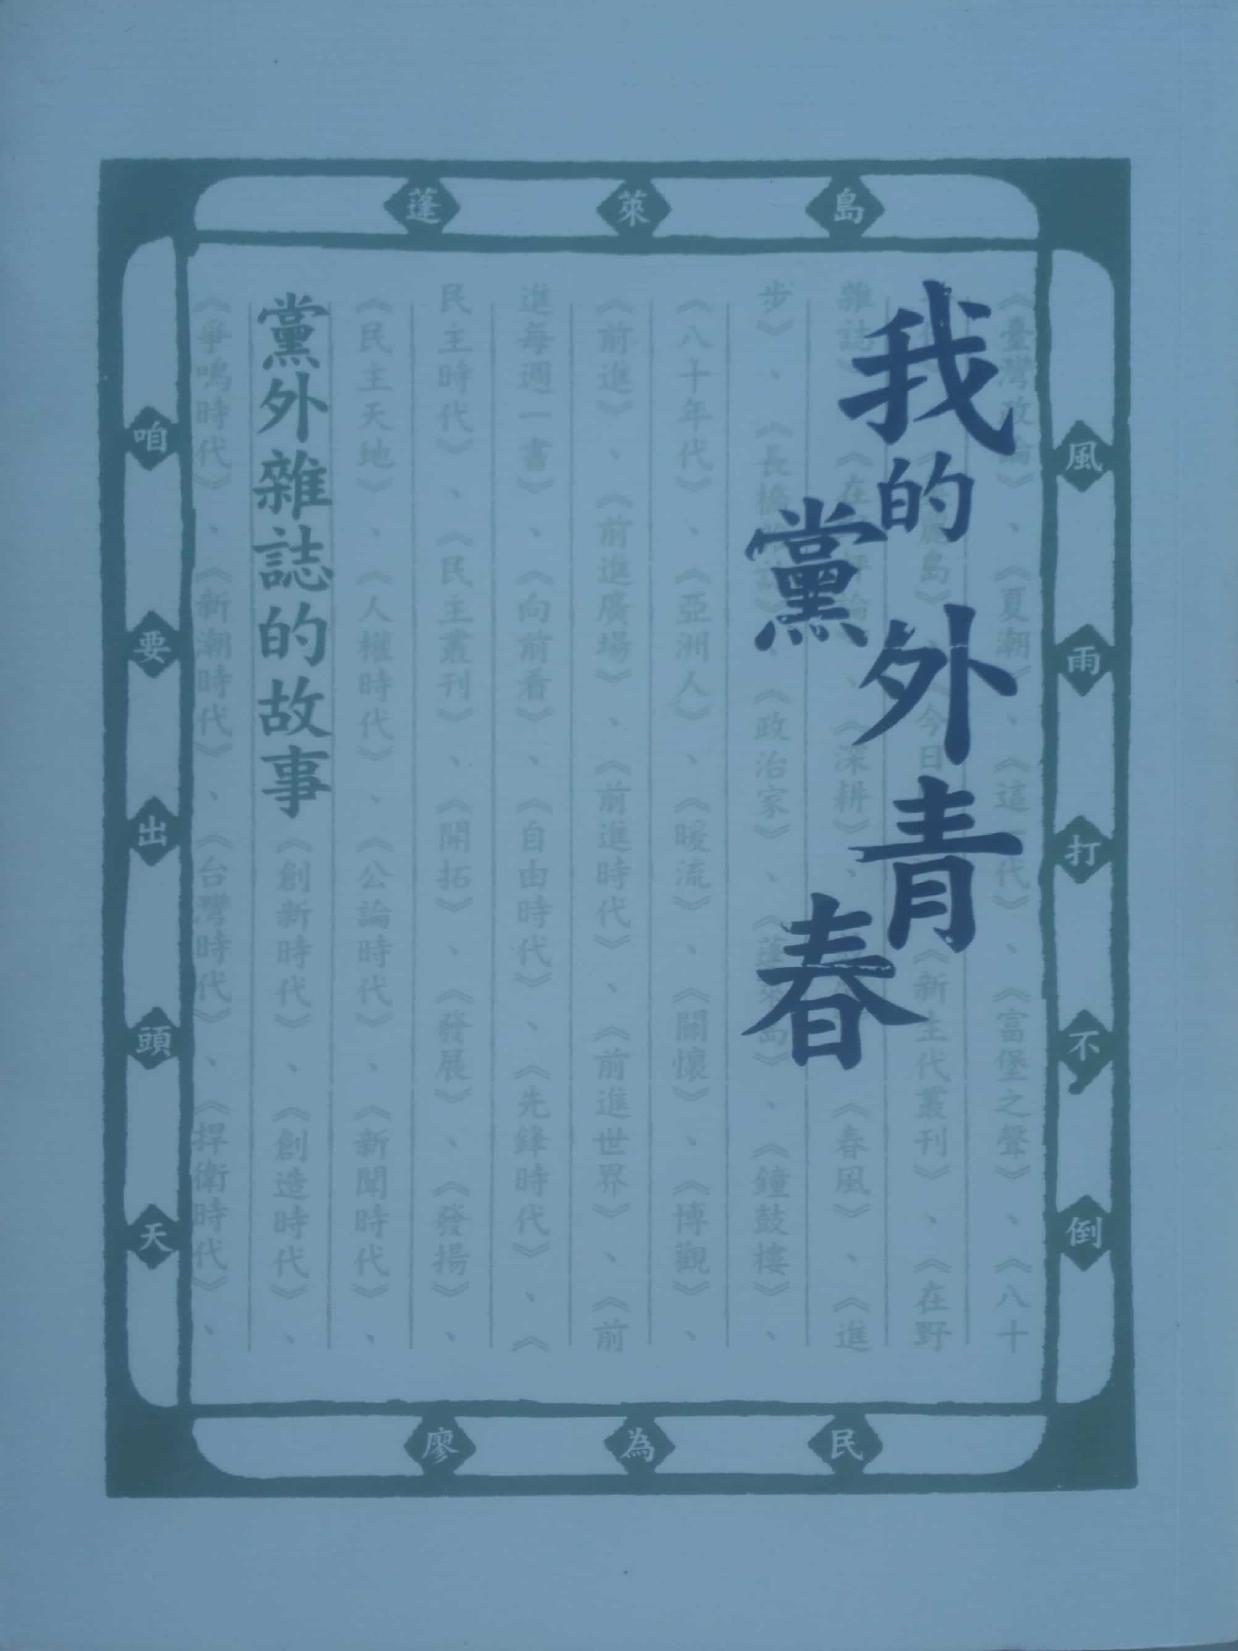 我的黨外青春
黨外雜誌的故事
蓬萊島
風雨打不倒
咱要出頭天
廖為民
《臺灣政論》、《夏潮》、《這一代》、《富堡之聲》、《八十
島》、《今日 《新生代叢刊》、《在野
雜誌》、《深耕》、 《春風》、《進
步》、《長橋 》、《政治家》、《蓬萊島》、《鐘鼓樓》、
《八十年代》、《亞洲人》、《暖流》、《關懷》、《博觀》、
《前進》、《前進廣場》、《前進時代》、《前進世界》、《前
進每週一書》、《向前看》、《自由時代》、《先鋒時代》、《
民主時代》、《民主叢刊》、《開拓》、《發展》、《發揚》、
《民主天地》、《人權時代》、《公論時代》、《新聞時代》、
《創新時代》、《創造時代》、
《爭鳴時代》、《新潮時代》、《台灣時代》、《捍衛時代》、